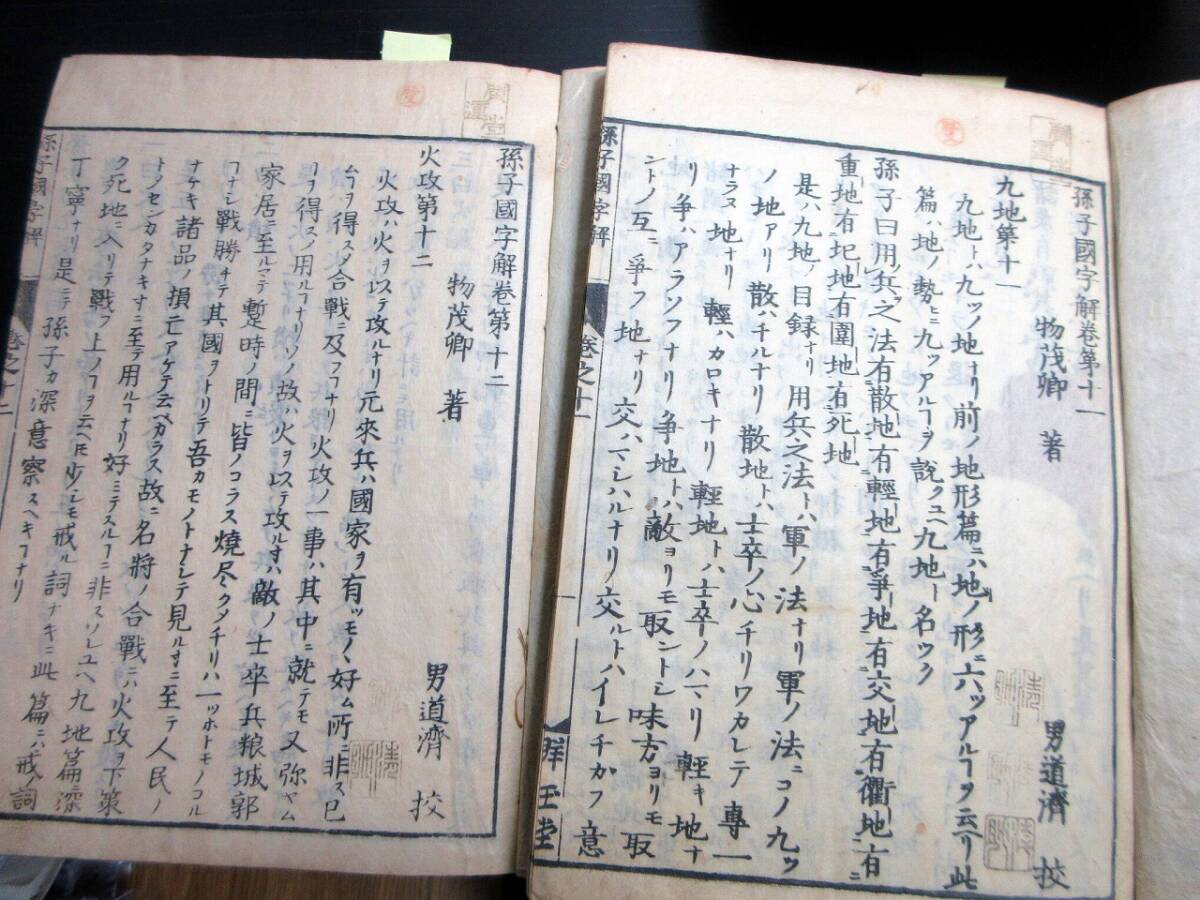 孫子國字解卷第十一
物茂卿 著
男道濟 挍
九地第十一
九地トハ九ツノ地ナリ前ノ地形篇ニハ地ノ形ニ六ツアルヿヲ云ヘリ此
篇ハ地ノ勢ヒニ九ツアルヿヲ說クユヘ九地ト名ツク
孫子曰用兵之法有散地有輕地有爭地有交地有衢地有
重地有圮地有圍地有死地
是ハ九地ノ目録ナリ用兵之法トハ軍ノ法ナリ軍ノ法ニコノ九ツ
ノ地アリ散ハチルナリ散地トハ士卒ノ心チリワカレテ專一
ナラヌ地ナリ輕ハカロキナリ輕地トハ士卒ノハマリ輕キ地ナ
リ爭ハアラソフナリ爭地トハ敵ヨリモ取ントシ味方ヨリモ取
ントノ互ニ爭フ地ナリ交ハマシハルナリ交ルトハイレチカフ意
孫子國字解
卷之十一
群玉堂
孫子國字解卷第十二
物茂卿 著
男道濟 挍
火攻第十二
火攻ハ火ヲ以テ攻ルナリ元來兵ハ國家ヲ有ツモノヽ好ム所ニ非ス已
ムヿヲ得スノ合戰ニ及フヿナリ火攻ノ一事ハ其中ニ就テモ又弥ヤム
ヿヲ得スノ用ルヿナリソノ故ハ火ヲ以テ攻ルオハ敵ノ士卒兵粮城郭
家居ニ至ルマテ暫時ノ間ニ皆ノコラス燒尽クメチリハ一ツホトモノコル
ヿナシ戰勝チテ其國ヲトリテ吾カモノトナシテ見ルオニ至テ人民ノ
ナケキ諸品ノ損亡アケテ云ベカラス故ニ名將ノ合戰ニハ火攻ヲ下策
トノセンカタナキオニ至テ用ルヿナリ好ミテスルヿニ非スソレユヘ九地篇深
ク死地ニ入リテ戰フ上ノヿヲ云ヘ𪜈少シモ戒ル詞ナキニ此篇ニハ戒ノ詞
丁寧ナリ是ニテ孫子カ深意察スヘキヿナリ
孫子國字解
卷之十二